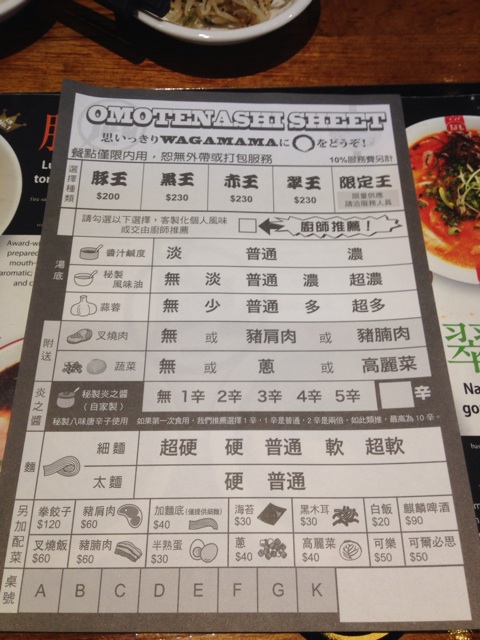 OMOTENASHI SHEET
思いっきりWAGAMAMAに〇をどうぞ！
餐點僅限內用，恕無外帶或打包服務 10%服務費另計
選擇種類 豚王 $200 黑王 $230 赤王 $230 翠王 $230 限定王 限量供應 請洽服務人員
請勾選以下選擇，客製化個人風味
或交由廚師推薦 廚師推薦！
湯底
醬汁鹹度 淡 普通 濃
秘製風味油 無 淡 普通 濃 超濃
蒜蓉 無 少 普通 多 超多
附送
叉燒肉 無 或 豬肩肉 或 豬腩肉
蔬菜 無 或 蔥 或 高麗菜
炎之醬
秘製炎之醬（自家製） 無 1辛 2辛 3辛 4辛 5辛 辛
秘製八味唐辛子使用 如果第一次食用，我們推薦選擇1辛，1辛是普通，2辛是兩倍，如此類推，最高為10辛。
麵
細麵 超硬 硬 普通 軟 超軟
太麵 硬 普通
另加配菜
拳餃子 $120 豬肩肉 $60 加麵底(僅提供細麵) $40 海苔 $30 黑木耳 $30 白飯 $20 麒麟啤酒 $90
叉燒飯 $60 豬腩肉 $60 半熟蛋 $30 蔥 $40 高麗菜 $40 可樂 $50 可爾必思 $50
桌號 A B C D E F G K